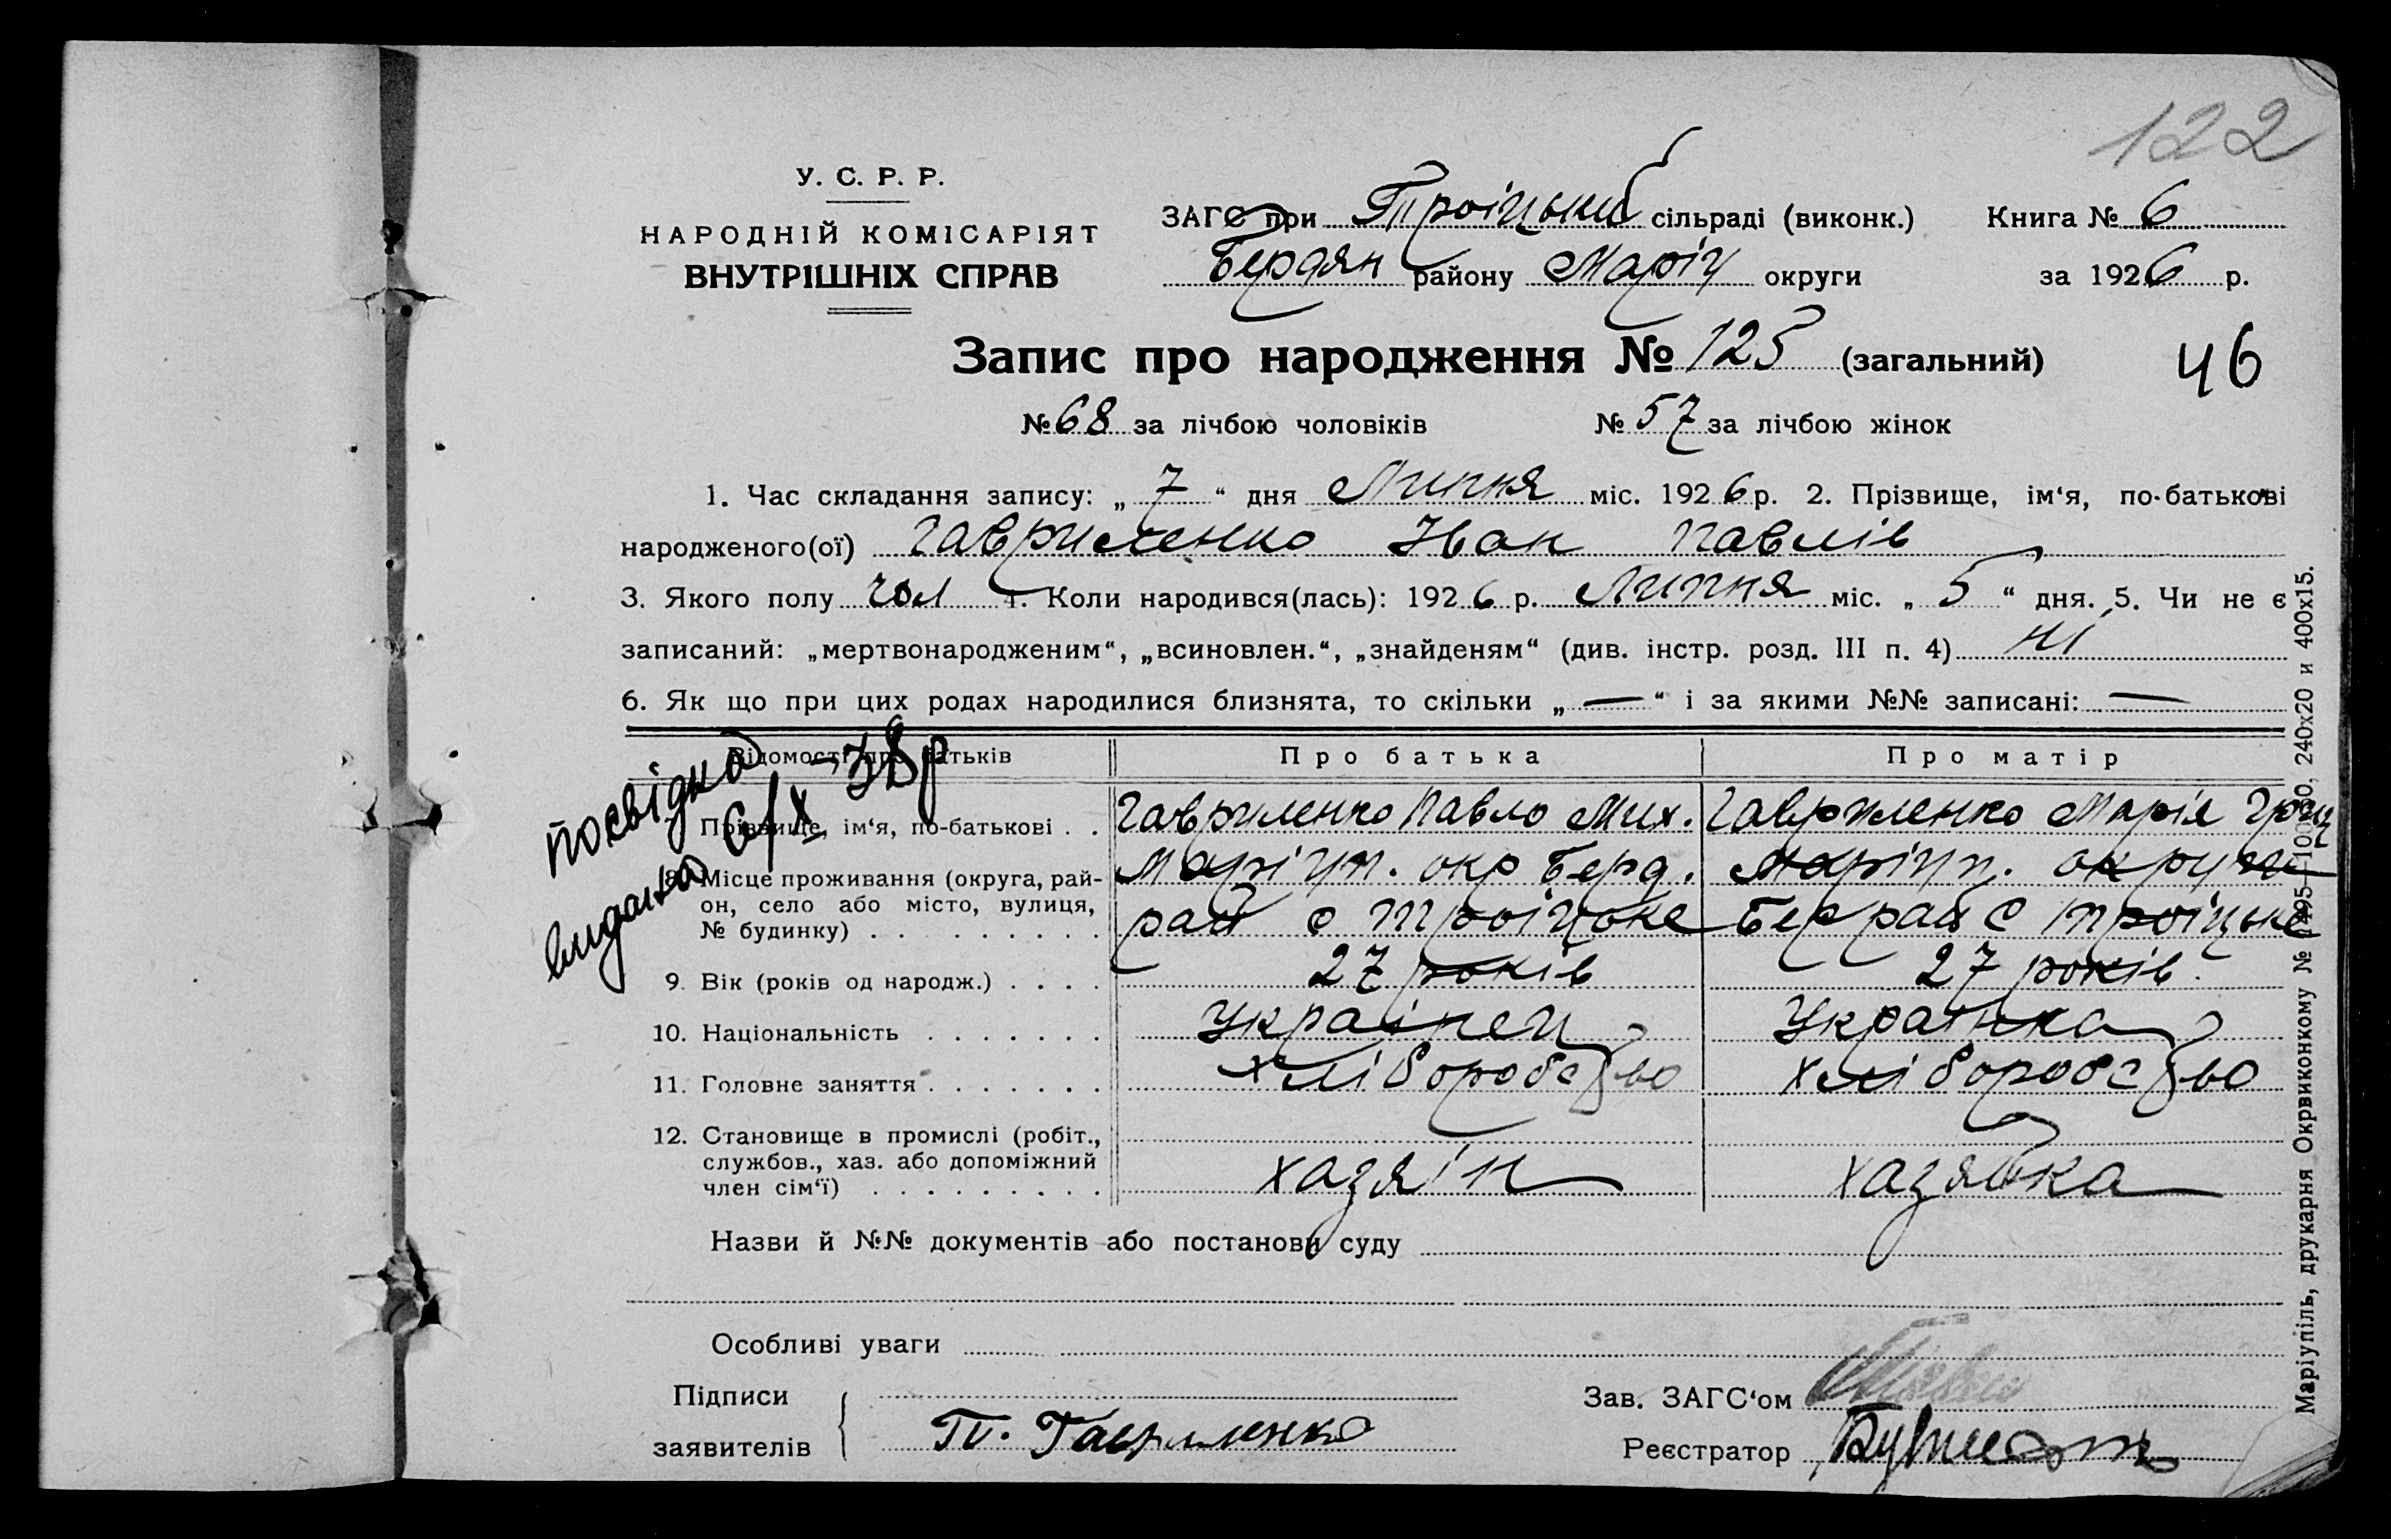 122
У. С. Р. Р.
НАРОДНІЙ КОМІСАРІЯТ
ВНУТРІШНІХ СПРАВ
ЗАГС при Троіцький сільраді (виконк.) Книга № 6
Бердян району Маріу округи за 1926 р.
Запис про народження № 125 (загальний)
46
№ 68 за лічбою чоловіків № 57 за лічбою жінок
1. Час складання запису: „ 7 “ дня Липня міс. 1926 р. 2. Прізвище, ім‘я, по-батькові
народженого(ої) Гавриленко Іван Павлів
3. Якого полу чол 4. Коли народився(лась): 1926 р. Липня міс. „ 5 “ дня. 5. Чи не є
записаний: „мертвонародженим“, „всиновлен.“, „знайденям“ (див. інстр. розд. III п. 4) ні
6. Як що при цих родах народилися близнята, то скільки „ — “ і за якими №№ записані: —
Відомості про батьків Про батька Про матір
посвідка
видана 6/X-38р
Прізвище, ім‘я, по-батькові . . Гавриленко Павло Мих. Гавриленко Марія Гриц
8. Місце проживання (округа, рай- Маріуп. окр Берд. Маріуп. округи
он, село або місто, вулиця, рай с Троіцьке Бер рай с Троіцьке
№ будинку) . . . . . . . . .
9. Вік (років од народж.) . . . . 27 років 27 років.
10. Національність . . . . . . . Украінец Украінка
11. Головне заняття . . . . . . . хліборобство хліборобство
12. Становище в промислі (робіт.,
службов., хаз. або допоміжний хазяін хазяйка
член сім‘ї) . . . . . . . . .
Назви й №№ документів або постанови суду
Особливі уваги
Підписи Зав. ЗАГС‘ом
заявителів П. Гавриленко Реєстратор
Маріупіль, друкарня Окрвиконкому № 240х20 и 400х15.